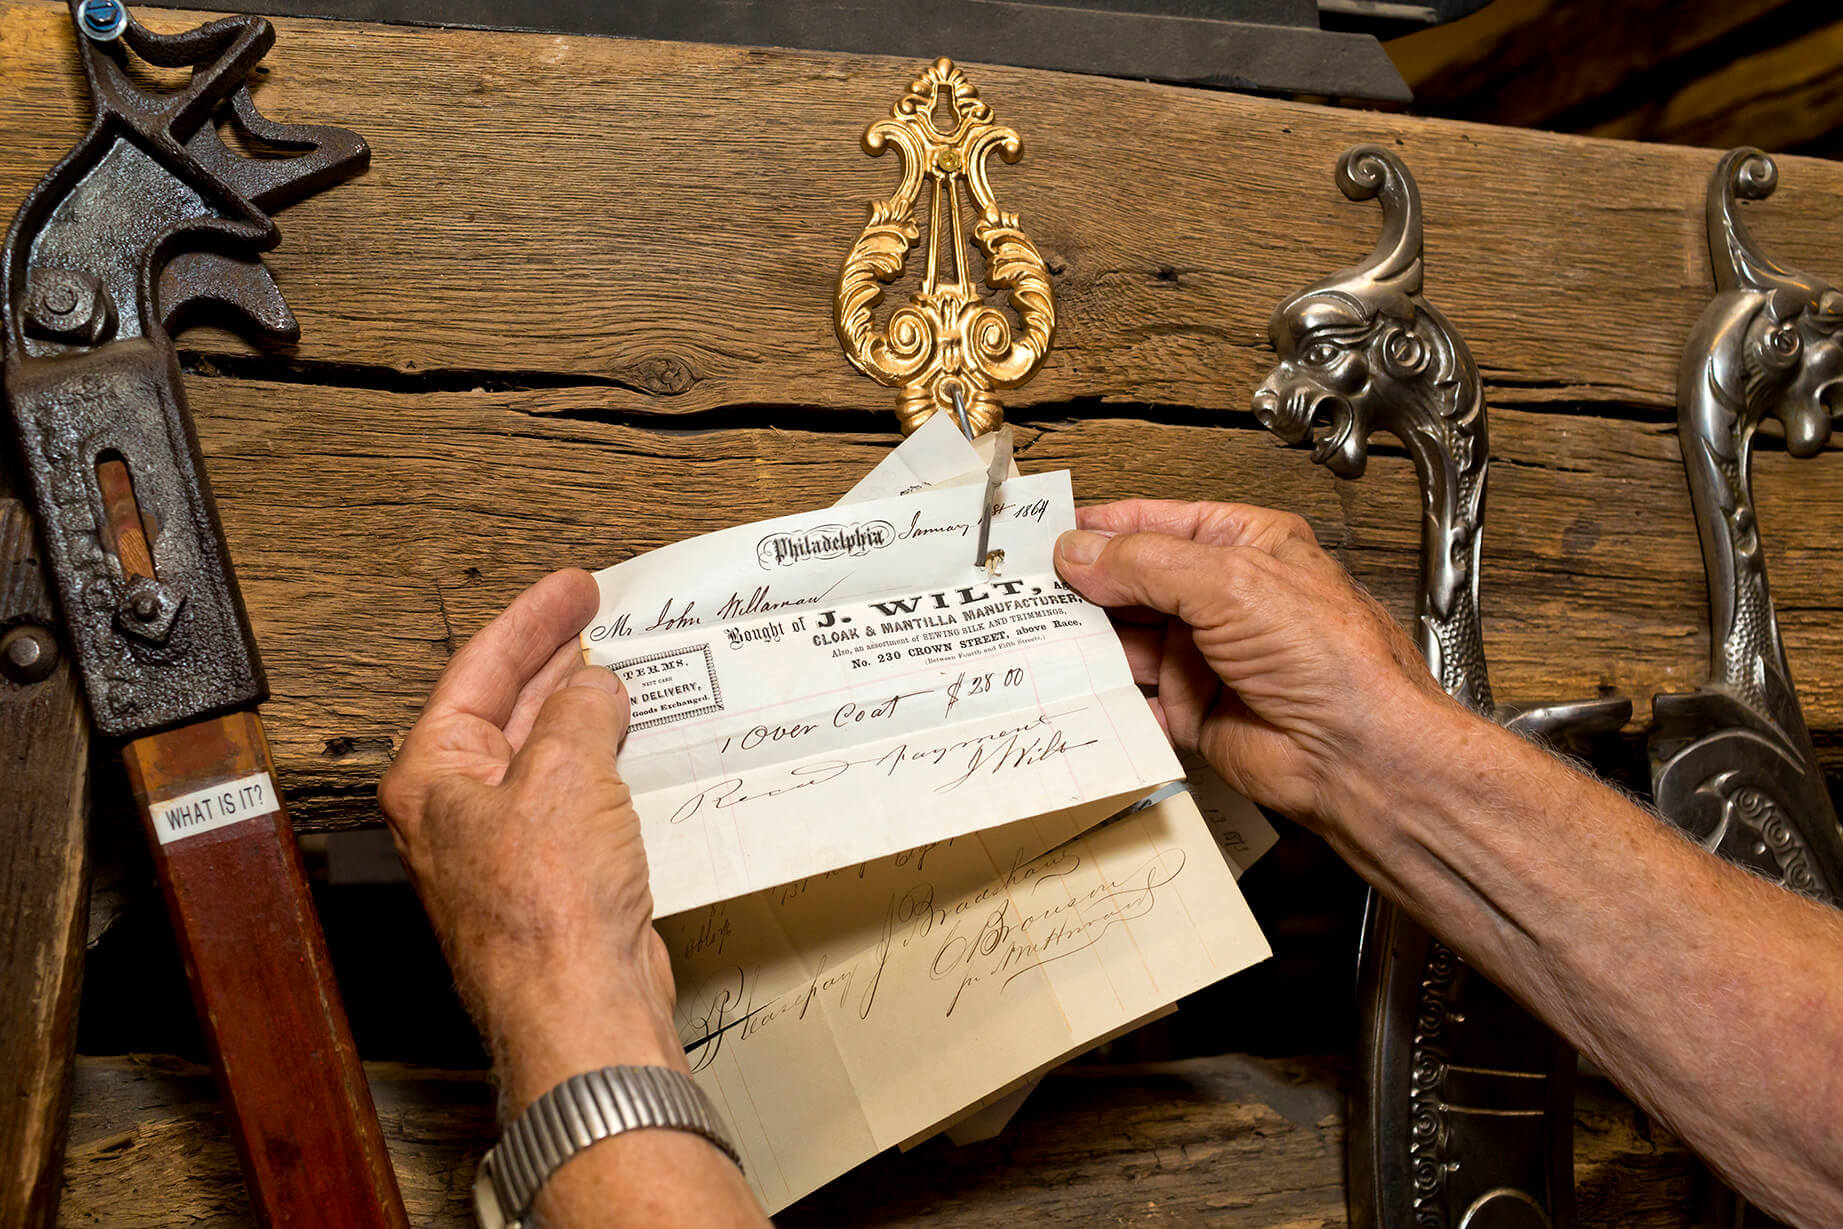 WHAT IS IT?
Philadelphia January 1st 1864
Mr John
Bought of J. WILT,
CLOAK & MANTILLA MANUFACTURER,
Also, an assortment of SEWING SILK AND TRIMMINGS,
No. 230 CROWN STREET, above Race,
(Between Fourth and Fifth Streets.)
TERMS,
NETT CASH
N DELIVERY,
Goods Exchanged.
1 Over Coat $28 00
Recd payment
J Wilt
Please pay J Bradshaw
C Bronson